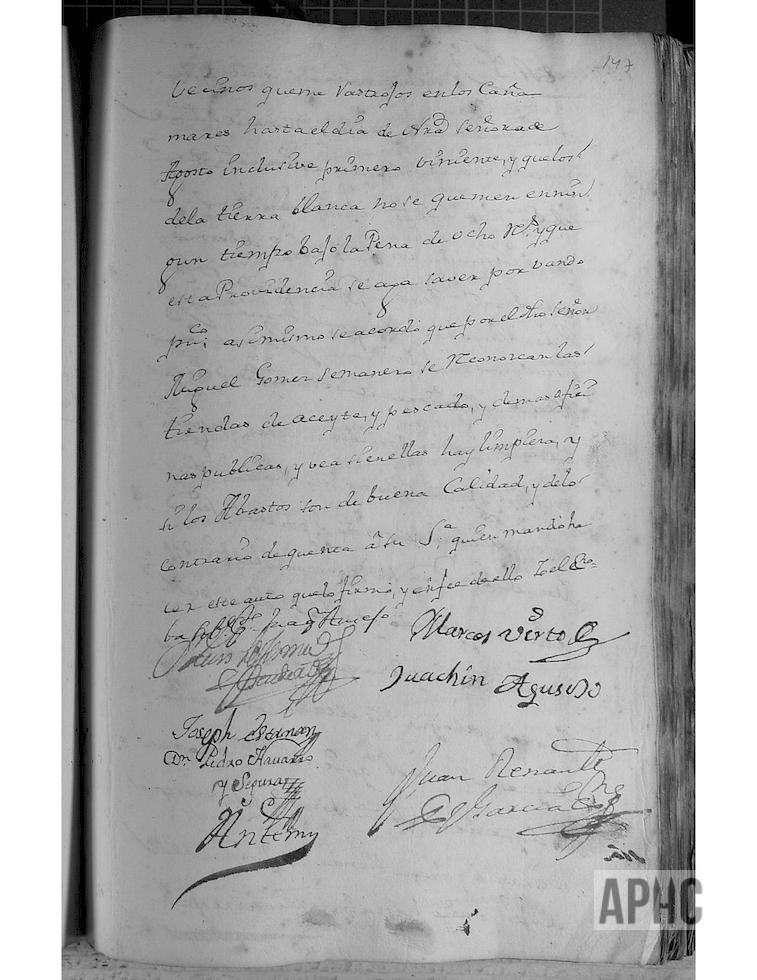 147
vecinos queme Rastrojos en los Caña
mares hasta el dia de Nrâ Señora de
Agosto inclusive primero viniente, y que los
dela tierra blanca no se quemen en nin
gun tiempo bajo la Pena de ocho Rs. y que
esta Providencia se aga saver por vando
pu.co; asimismo se acordó que por el dho señor
Miguel Gomez semanero se Reconozcan las
tiendas de aceyte, y pescado, y demas ofici
nas publicas, y vea si en ellas hay limpieza, y
si los Abastos son de buena Calidad, y de lo
contrario de quenta â su S.a quien mandó ha
cer este auto que lo firmó, y en fee de ello
Marcos Verto
Juachin Agusdo
Joseph
Dn. Pedro Navarro
y Segura
Juan
Garcia
Antemy
APHC